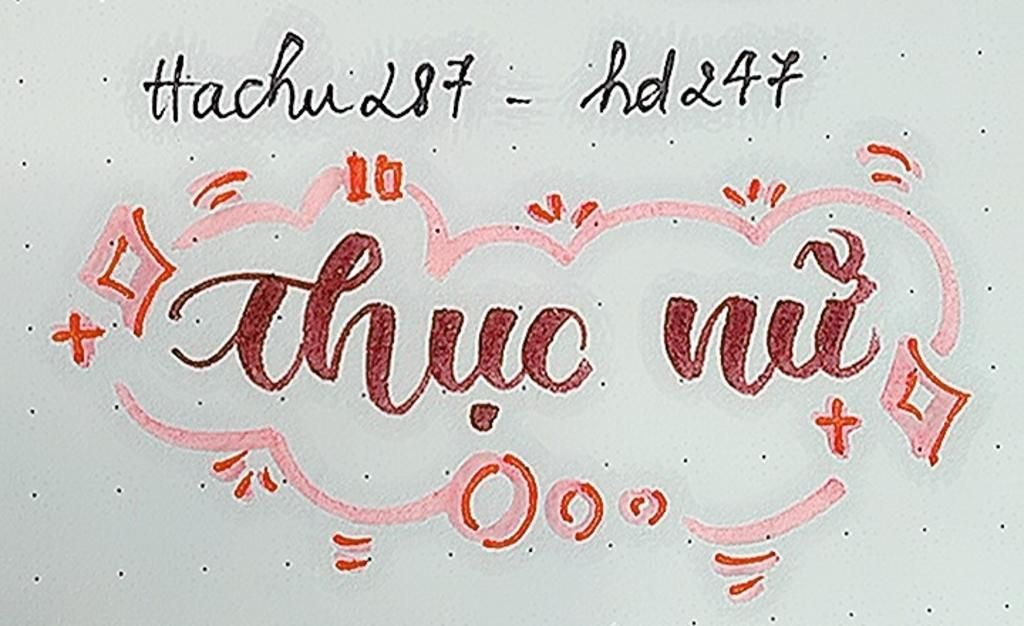 Hachu287 - hd247
Thục nữ